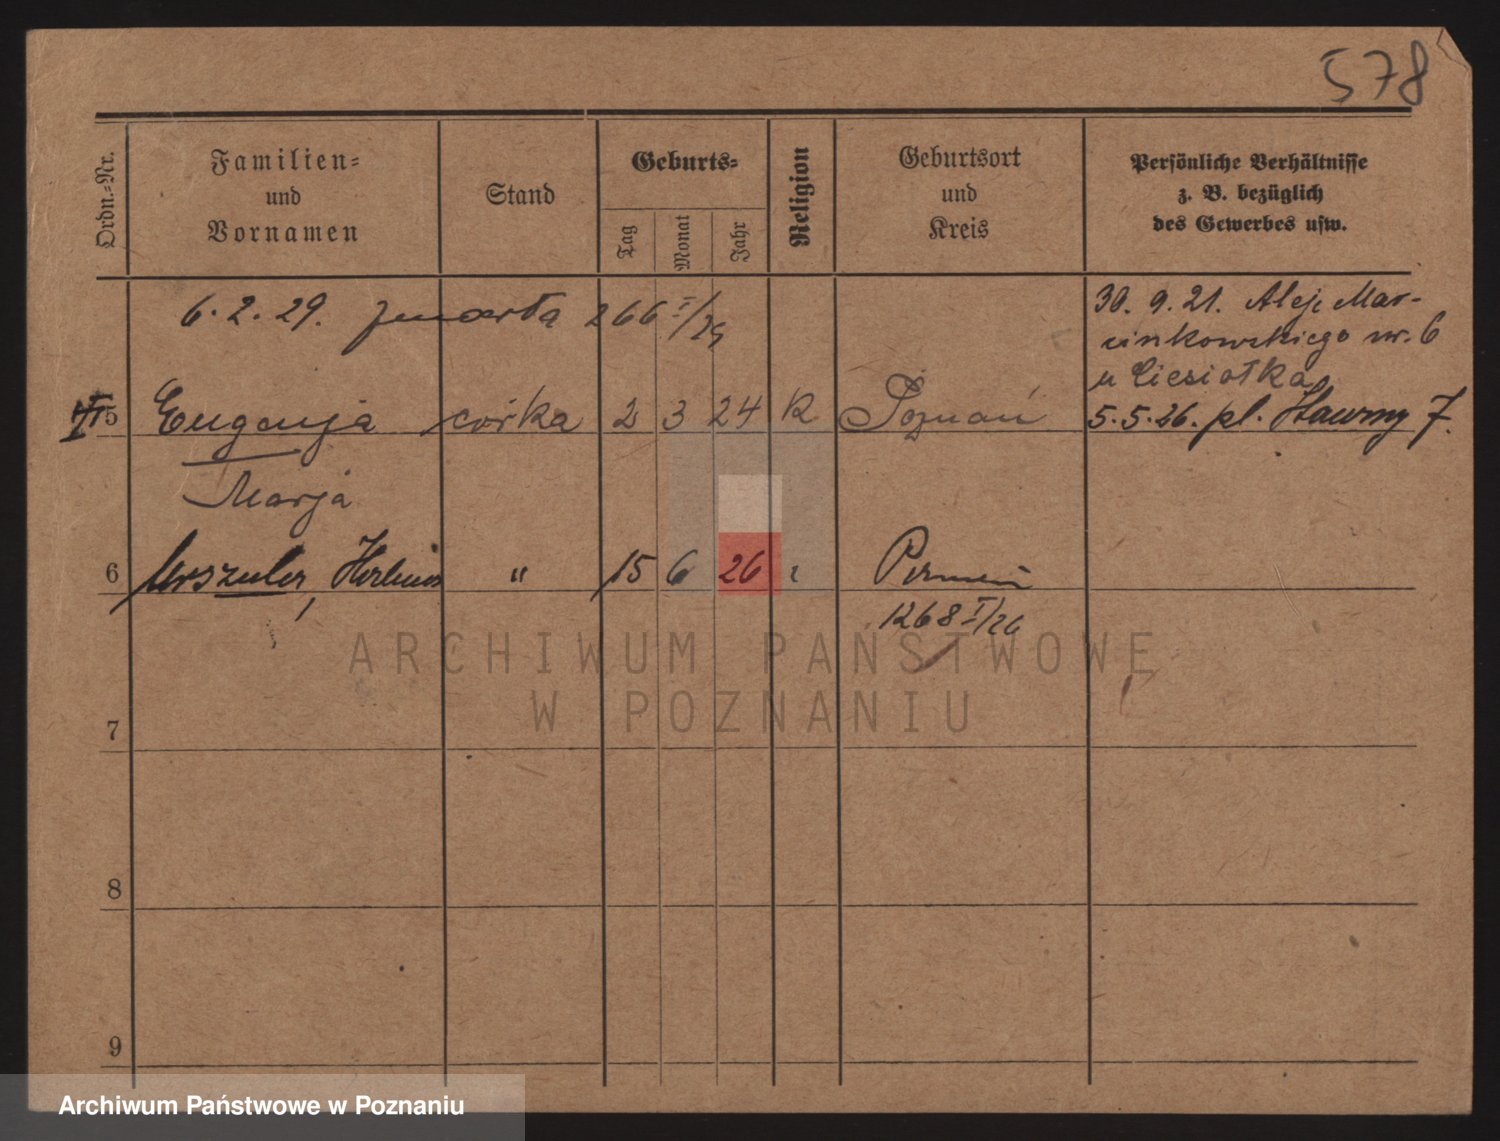 578
Ordn.-Nr.
Familien-
und
Vornamen
Stand
Geburts-
Tag
Monat
Jahr
Religion
Geburtsort
und
Kreis
Persönliche Verhältnisse
z. B. bezüglich
des Gewerbes usw.
6. 2. 29. zmarła 266 I/29
30. 9. 21. Alej. Mar-
cinkowskiego nr. 6
u Ciesiołka
5 Eugenja córka 2 3 24 K Poznań 5. 5. 26. pl. 7.
Marja
6 Urszula, " 15 6 26 Poznań
1268 I/26
7
8
9
ARCHIWUM PAŃSTWOWE
W POZNANIU
Archiwum Państwowe w Poznaniu